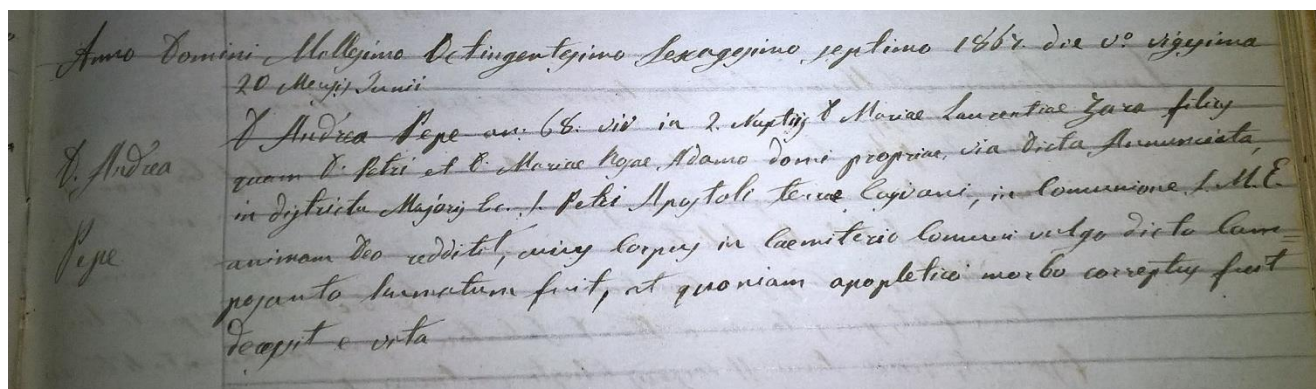 Anno Domini Millesimo Octingentesimo Sexagesimo septimo 1867. die vº vigesima
20 Mensis Junii
D. Andrea Pepe an. 68. vir in 2. Nuptijs D. Mariae Laurentiae Zara filius
D. Andrea
quam D. Petri et D. Mariae Rosae Adamo domi propriae, via dicta Annunciata,
in districtu Majoris Ec. S. Petri Apostoli terrae Cajvani, in Comunione S. M. E.
Pepe
animam Deo reddidit, cuius Corpus in Caemiterio Comuni vulgo dicto Cam=
posanto humatum fuit, at quoniam apopletico morbo correptus fuit
decessit e vita